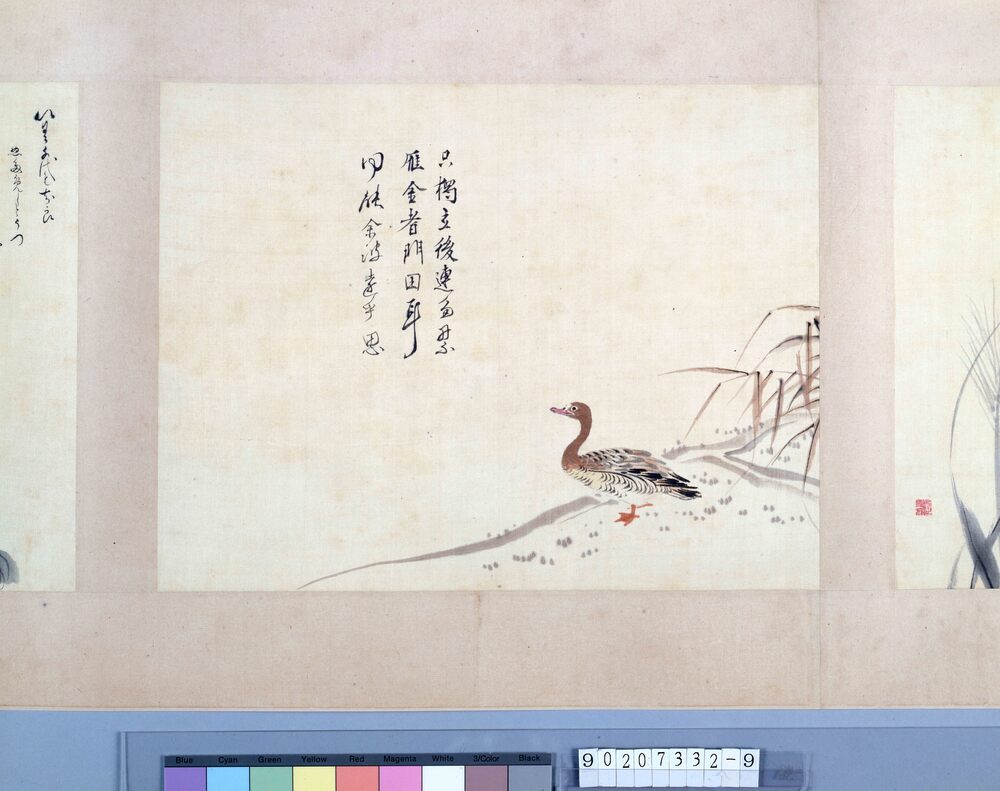 只獨立後連多累
雁金者門田耳
何能余波遠乎思
Blue Cyan Green Yellow Red Magenta White 3/Color Black
90207332-9